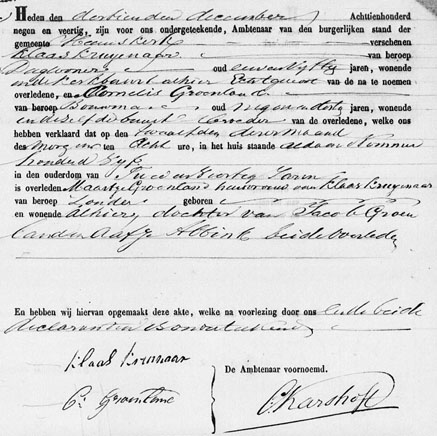 Heden den dertienden december Achttienhonderd
negen en veertig, zijn voor ons ondergeteekende, Ambtenaar van den burgerlijken stand der
gemeente Heemskerk verschenen
Klaas Kruijenaar
van beroep Daglooner oud eenenvijftig jaren, wonende
in de Kerkbuurt alhier Echtgenoot van de na te noemen
overledene, en Cornelis Groenland
van beroep Bouwman oud negenendertig jaren, wonende
in dezelfde buurt broeder van de overledene, welke ons
hebben verklaard dat op den twaalfden dezer maand
des morgens ten acht ure, in het huis staande aldaar Nummer
honderd Vijf
in den ouderdom van Twee en veertig Jaren
is overleden Maartje Groenland huisvrouw van Klaas Kruijenaar
van beroep zonder geboren
en wonende alhier, dochter van Jacob Groen
land en Aafje Abbink beide overleden
En hebben wij hiervan opgemaakt deze akte, welke na voorlezing door ons en de beide
declaranten is onderteekend
Klaas Kruijenaar
De Ambtenaar voornoemd.
C: Groenland